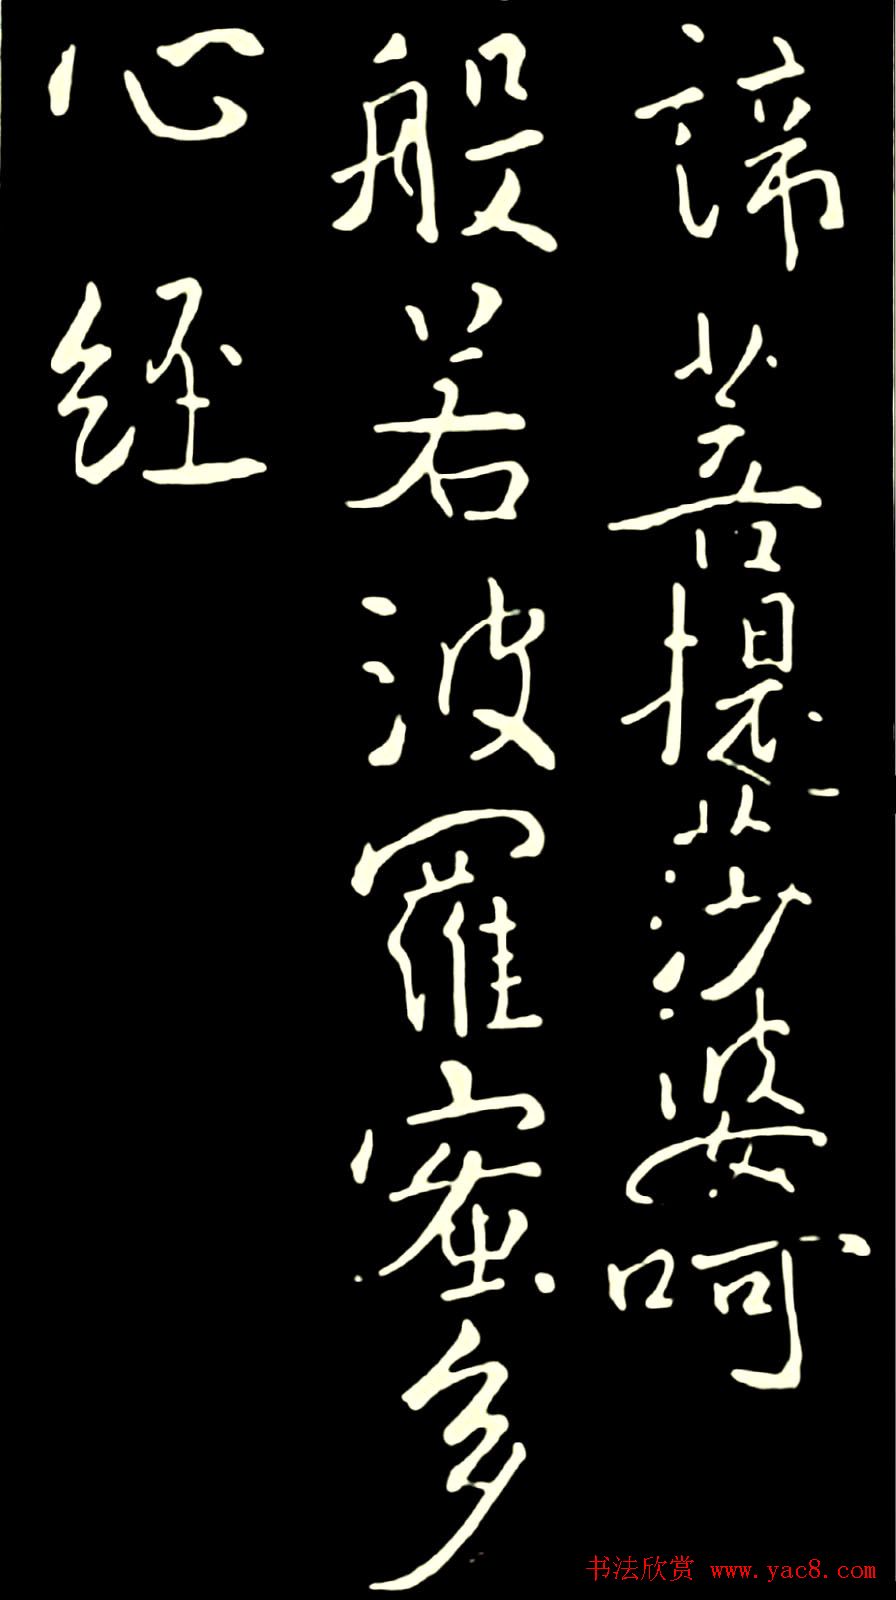 諦菩提莎婆呵
般若波羅蜜多
心經
书法欣赏 www.yac8.com